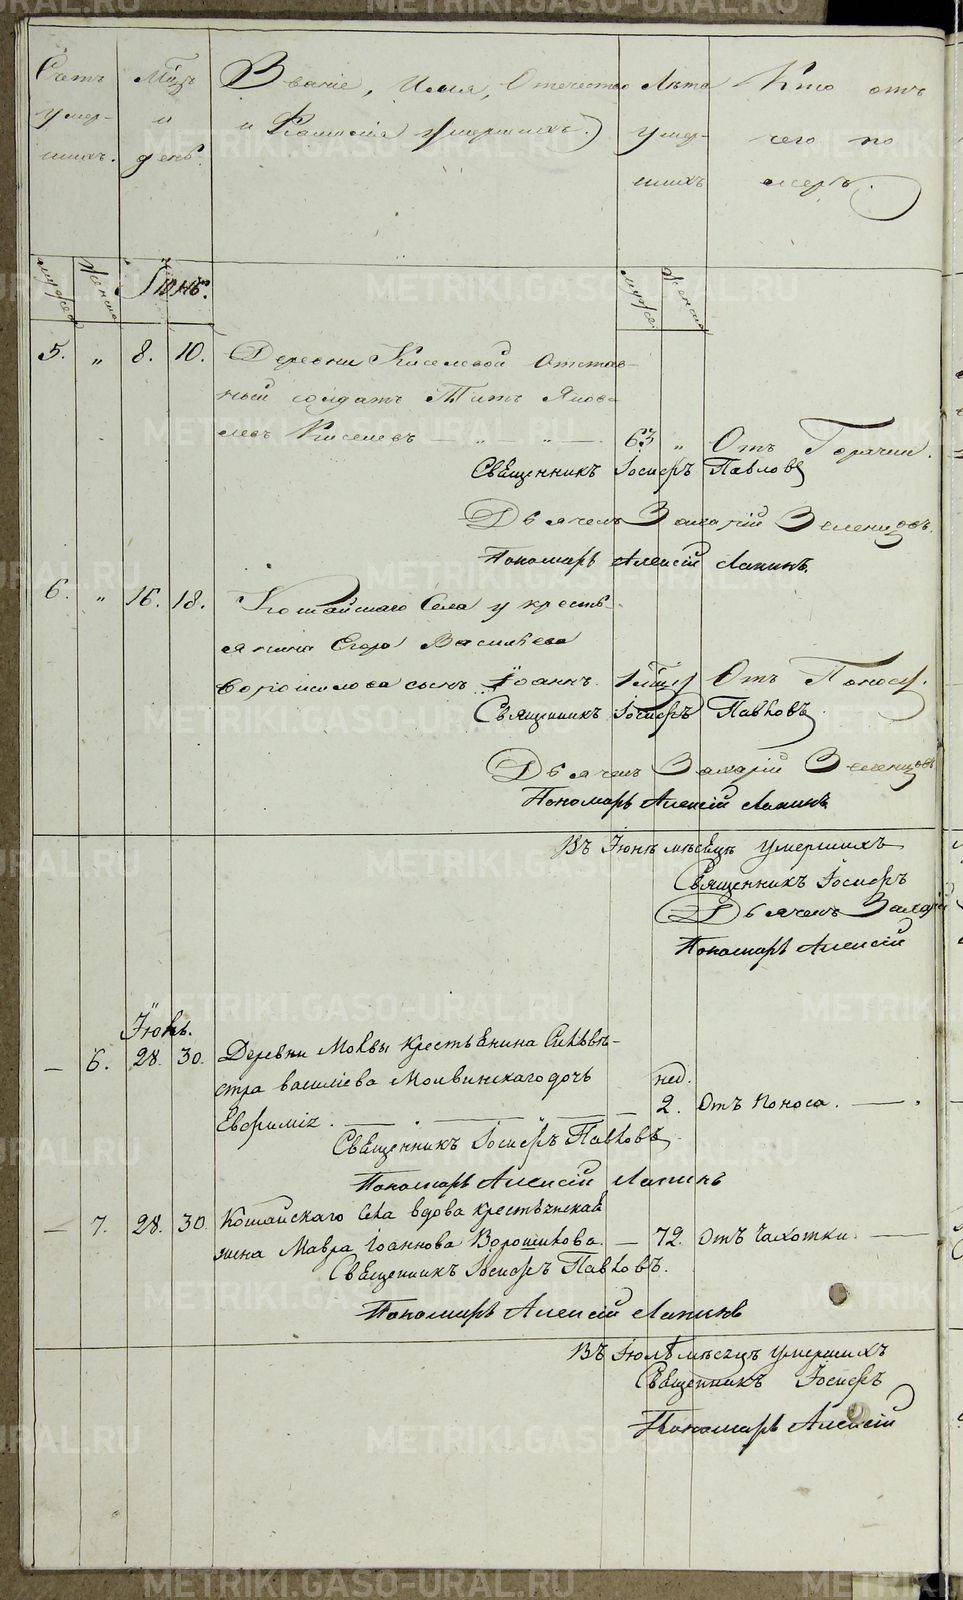 Счетъ умершихъ.
Мѣсяцъ и день.
Званіе, Имя, Отечество
и Фамилія умершихъ.
Лѣта умершихъ
Кто отъ чего померъ.
мужеска
женска
Іюнь.
мужес.
женска
5. „ 8. 10. Деревни Киселевой Отстав-
ный солдатъ Титъ Яков-
левъ Киселевъ — „ — „ — 63 „ Отъ Горячки.
Священникъ Іосифъ Павловъ
Дьячекъ Захарій Зеленцовъ.
Пономарь Алексій Лапинъ.
6. „ 16. 18. Кошайскаго Села у кресть-
янина Егора Васильева
Ворошилова сынъ Іоаннъ. 1 мѣсяц Отъ Поносу.
Священникъ Іосифъ Павловъ
Дьячекъ Захарій Зеленцовъ
Пономарь Алексій Лапинъ
Въ Іюнѣ мѣсяцѣ умершихъ
Священникъ Іосифъ
Дьячекъ Захарій
Пономарь Алексій
Іюнь.
— 6. 28. 30. Деревни Молвы крестьянина Сильве-
стра Василіева Молвинскаго дочь
Евфимія. — — — нед. 2. отъ поноса. —
Священникъ Іосифъ Павловъ
Пономарь Алексій Лапинъ
— 7. 28. 30. Кошайскаго села вдова крестьянская
жена Мавра Іоаннова Ворошилова. — 72. отъ чахотки. —
Священникъ Іосифъ Павловъ.
Пономарь Алексій Лапинъ
Въ Іюлѣ мѣсяцѣ умершихъ
Священникъ Іосифъ
Пономарь Алексій
METRIKI.GASO-URAL.RU